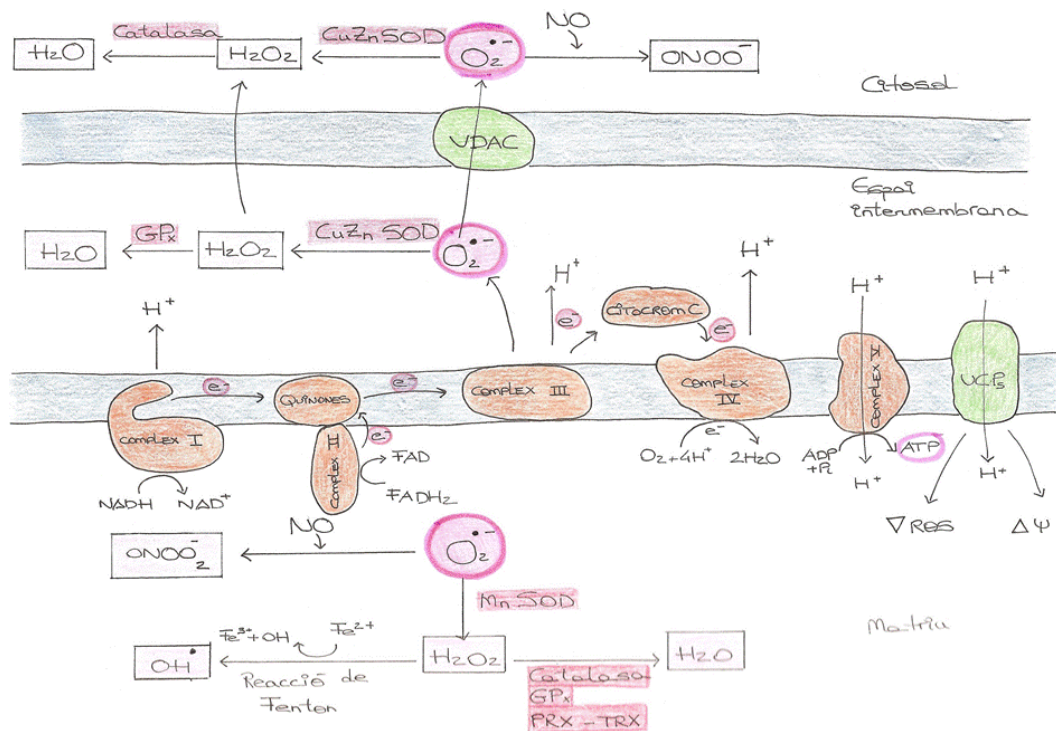 H₂O
Catalasa
H₂O₂
CuZnSOD
O₂•-
NO
ONOO⁻
Citosol
VDAC
Espai
intermembrana
H₂O
GPx
H₂O₂
CuZn SOD
O₂•-
H⁺
H⁺
e-
CITOCROM C
e-
H⁺
H⁺
H⁺
COMPLEX I
e-
QUINONES
e-
COMPLEX III
COMPLEX
IV
COMPLEX V
UCPs
COMPLEX II
e-
FAD
FADH₂
NADH
NAD⁺
e-
O₂+4H⁺
2H₂O
ADP
+Pi
H⁺
ATP
H⁺
▽ ROS
△ Ψ
NO
ONOO₂⁻
O₂•-
Mn SOD
Matriu
Fe³⁺+OH
Fe²⁺
OH•
Reacció de
Fenton
H₂O₂
H₂O
Catalasa
GPx
PRX - TRX